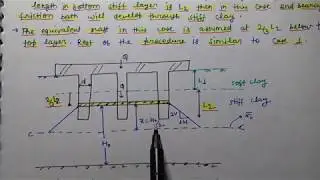 length in bottom stiff layer is L₂ then in this case end bearing
friction both will develop through stiff clay.
→ The equivalent raft in this case is assumed at 2/3 L₂ below the
top layer. Rest of the procedure is similar to case
Q
d
L₁
soft clay
2/3 L₂
Q
L₂
stiff clay
2V
1H
H₀